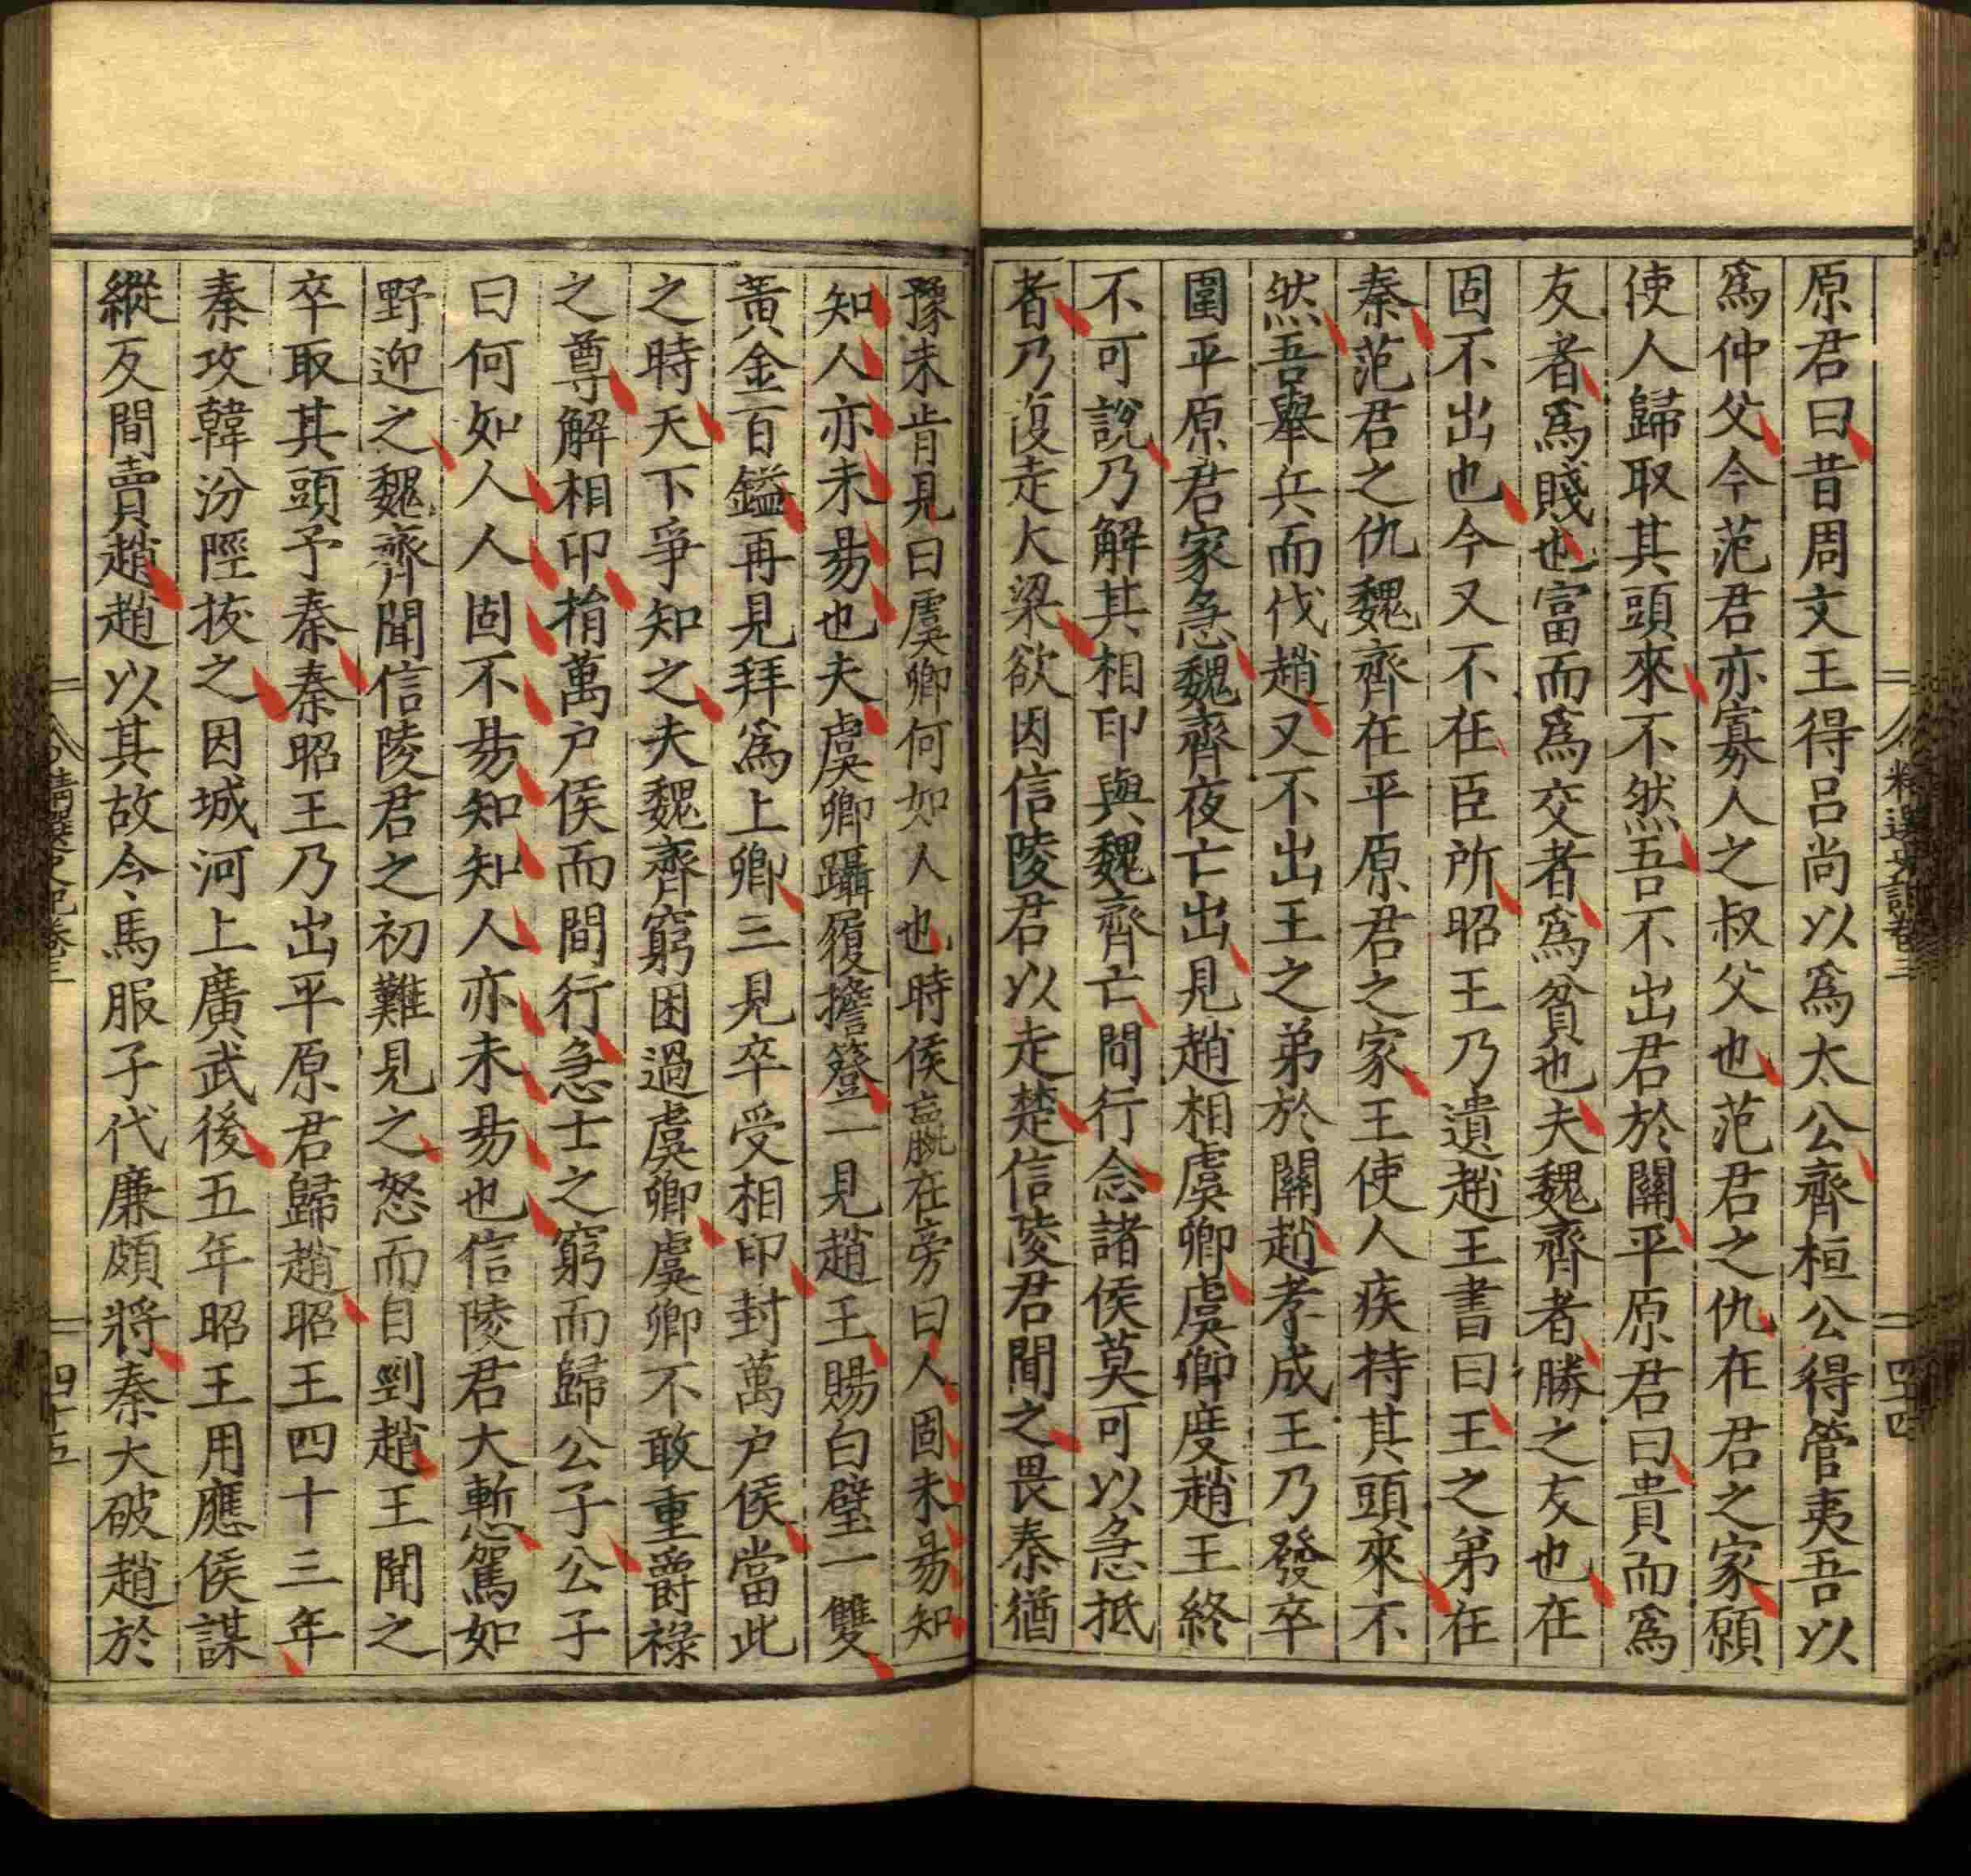 原君曰昔周文王得呂尚以爲太公齊桓公得管夷吾以
爲仲父今范君亦寡人之叔父也范君之仇在君之家願
使人歸取其頭來不然吾不出君於關平原君曰貴而爲
友者爲賤也富而爲交者爲貧也夫魏齊者勝之友也在
固不出也今又不在臣所昭王乃遺趙王書曰王之弟在
秦范君之仇魏齊在平原君之家王使人疾持其頭來不
然吾舉兵而伐趙又不出王之弟於關趙孝成王乃發卒
圍平原君家急魏齊夜亡出見趙相虞卿虞卿度趙王終
不可說乃解其相印與魏齊亡間行念諸侯莫可以急抵
者乃復走大梁欲因信陵君以走楚信陵君聞之畏秦猶
精選史記卷三
四十四
豫未肯見曰虞卿何如人也時侯嬴在旁曰人固未易知
知人亦未易也夫虞卿躡履擔簦一見趙王賜白璧一雙
黃金百鎰再見拜爲上卿三見卒受相印封萬户侯當此
之時天下爭知之夫魏齊窮困過虞卿虞卿不敢重爵祿
之尊解相印捐萬户侯而間行急士之窮而歸公子公子
曰何如人人固不易知知人亦未易也信陵君大慙駕如
野迎之魏齊聞信陵君之初難見之怒而自剄趙王聞之
卒取其頭予秦秦昭王乃出平原君歸趙昭王四十三年
秦攻韓汾陘拔之因城河上廣武後五年昭王用應侯謀
縱反間賣趙趙以其故令馬服子代廉頗將秦大破趙於
精選史記卷三
四十五